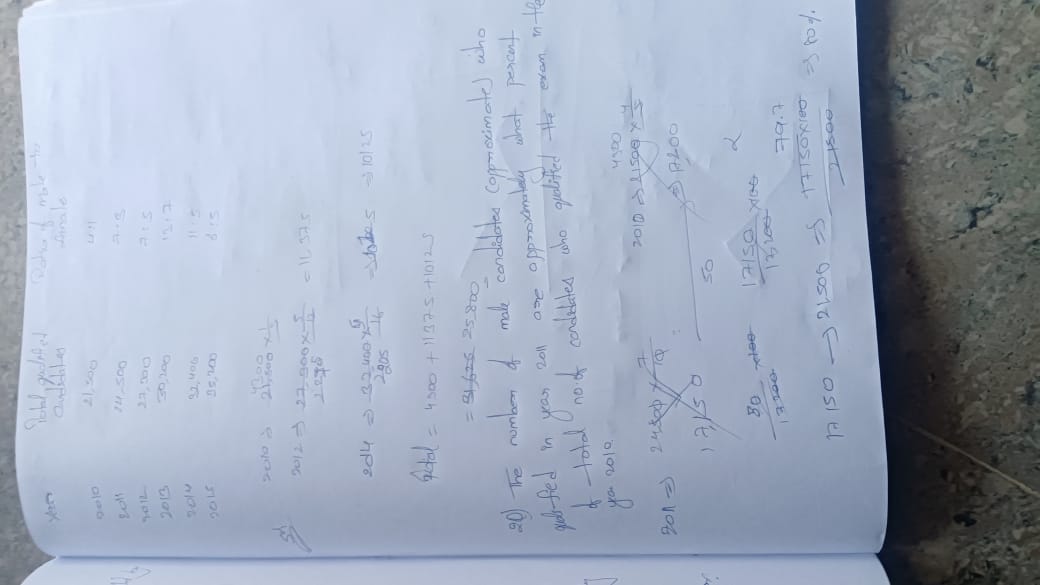 Year Total qualified candidates Ratio of male to female
2010 21,500 4:1
2011 24,500 7:3
2012 27,300 7:5
2013 30,200 13:7
2014 32,400 11:5
2015
2010 ⇒ 21500 × 1/5
2012 ⇒ 27,300 × 5/12 = 11375
2014 ⇒ 32400 × 5/16 ⇒ 10125
Total = 4300 + 11375 + 10125
= 25,800
2Q) The number of male candidates (approximate) who
qualified in year 2011 are approximately what percent
of total no of candidates who qualified the exam in the
year 2010.
2011 ⇒ 24500 × 7/10 2010 ⇒ 21500 × 4/5
17150 ⇒ 17200
50
17150/17,200 × 100
79.7
17150 → 21500 ⇒ 17150×100/21500 ⇒ 80%